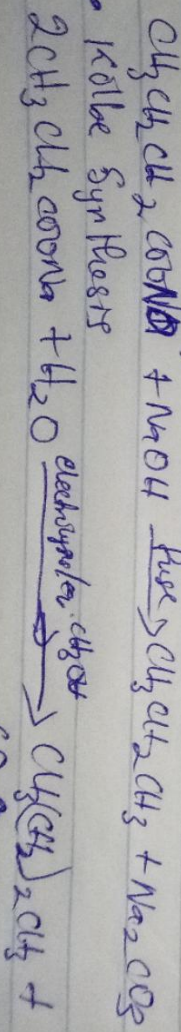 CH3CH2CH2COONa + NaOH fuse→ CH3CH2CH3 + Na2CO3
• Kolbe Synthesis
2CH3CH2COONa + H2O electrolysis, CH3OH→ CH3(CH2)2CH3 +